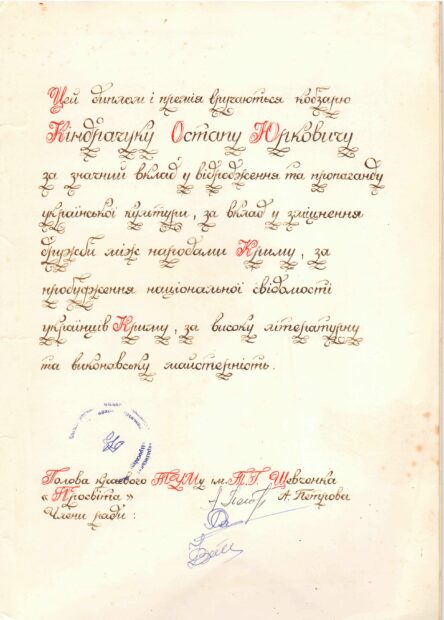 Цей диплом і премія вручаються кобзарю
Кіндрачуку Остапу Юрковичу
за значний вклад у відродження та пропаганду
української культури, за вклад у зміцнення
дружби між народами Криму, за
пробудження національної свідомості
українців Криму, за високу літературну
та виконавську майстерність.
Голова краєвого ТУМу ім. Т. Г. Шевченка
« Просвіта » А. Петрова
Члени ради :